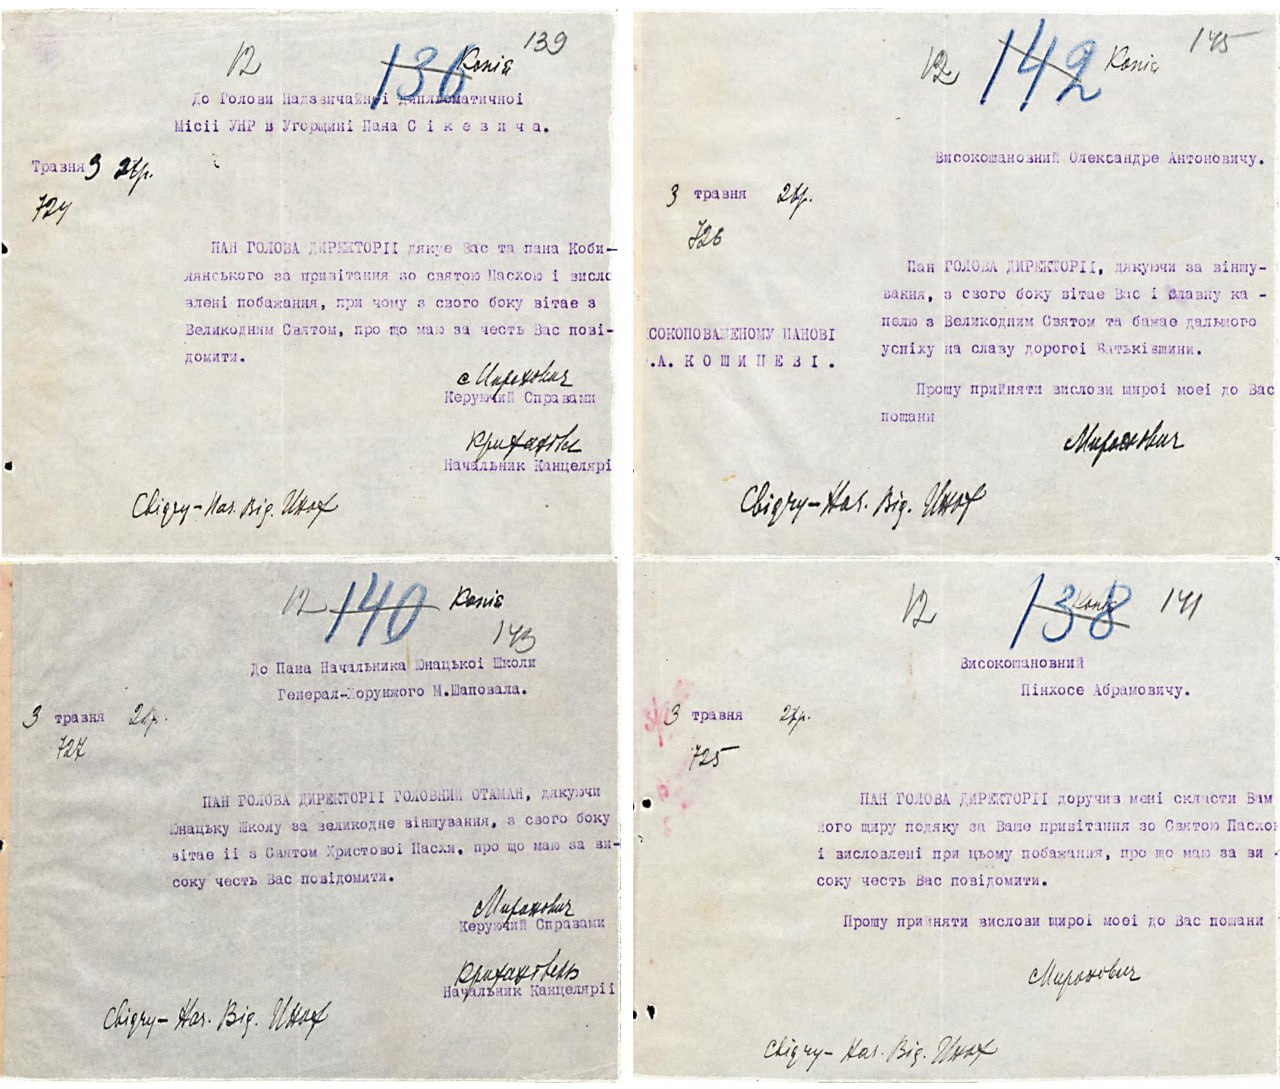 12
136
Копія
139
До Голови Надзвичайної дипломатичної
Місії УНР в Угорщині Пана С і к е в и ч а.
Травня 3 21р.
724
ПАН ГОЛОВА ДИРЕКТОРІІ дякує Вас та пана Коби-
лянського за привітання зо святою Пасхою і висло
влені побажання, при чому з свого боку вітає з
Великодним Святом, про що маю за честь Вас пові-
домити.
Миронович
Керуючий Справами
Начальник Канцелярі
Свідчу-Нач. Від.
12
142
Копія
145
Високошановний Олександре Антоновичу.
3 травня 21р.
726
Пан ГОЛОВА ДИРЕКТОРІІ, дякуючи за віншу-
вання, з свого боку вітає Вас і Славну ка -
пелю з Великодним Святом та бажає дальшого
успіху на славу дорогоі Батьківшини.
СОКОПОВАЖЕНОМУ ПАНОВІ
.А. К О Ш И Ц Е В І .
Прошу прийняти вислови щироі моєі до Вас
пошани
Миронович
Свідчу-Нач. Від.
12
140
Копія
143
До Пана Начальника Юнацькоі Школи
Генерал-Хорунжого М.Шаповала.
3 травня 21р.
727
ПАН ГОЛОВА ДИРЕКТОРІІ ГОЛОВНИЙ ОТАМАН, дякуючи
Юнацьку Школу за великодне віншування, з свого боку
вітає іі з Святом Христовоі Пасхи, про що маю за ви-
соку честь Вас повідомити.
Миронович
Керуючий Справами
Начальник Канцеляріі
Свідчу-Нач. Від.
12
138
Копія
141
Високошановний
Пінхосе Абрамовичу.
3 травня 21р.
725
ПАН ГОЛОВА ДИРЕКТОРІІ доручив мені скласти Вам
його щиру подяку за Ваше привітання зо Святою Пасхою
і висловлені при цьому побажання, про що маю за ви -
соку честь Вас повідомити.
Прошу прийняти вислови щироі моєі до Вас пошани
Миронович
Свідчу-Нач. Від.